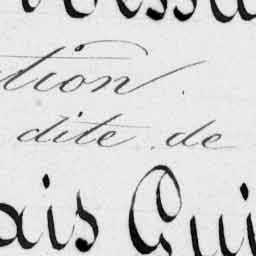 tion.
dite de
ais Gui